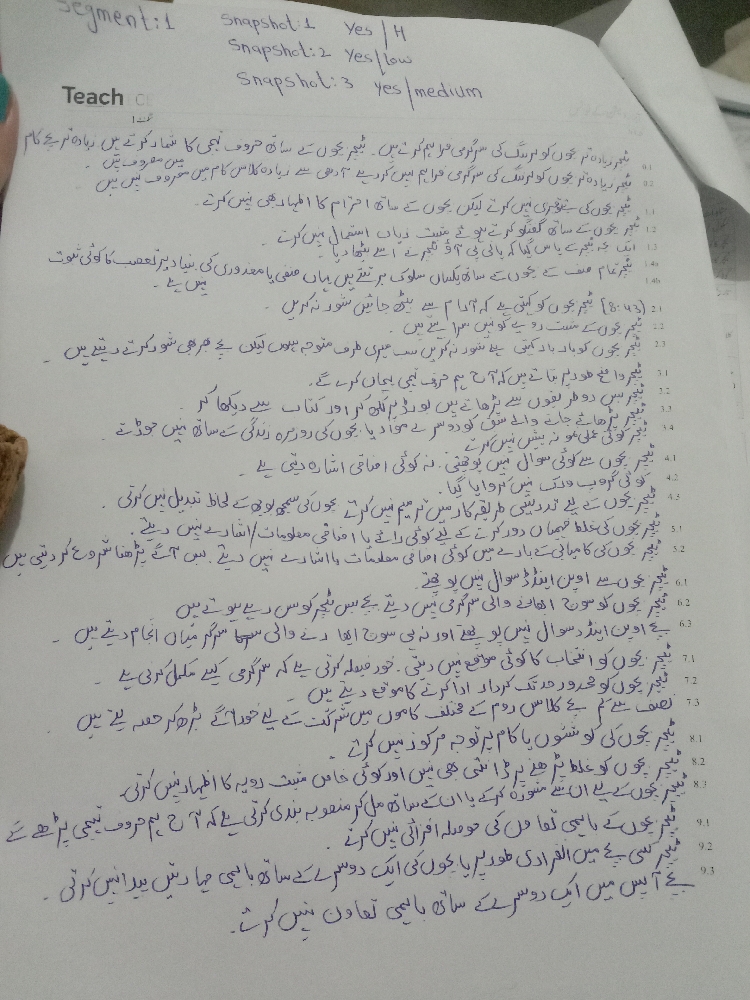 Segment: 1
Snapshot: 1 Yes / H
Snapshot: 2 Yes / Low
Snapshot: 3 Yes / medium
Teach
0.1 ٹیچر زیادہ تر بچوں کو لرننگ کی سرگرمی فراہم کرتے ہیں۔ ٹیچر بچوں کے ساتھ حروف تہجی کا شمار کرتے ہیں زیادہ تر بچے کام میں مصروف ہیں
0.2 ٹیچر زیادہ تر بچوں کو لرننگ کی سرگرمی فراہم نہیں کر رہے آدھی سے زیادہ کلاس کام میں مصروف نہیں ہیں
1.1 ٹیچر بچوں کی بے عزتی نہیں کرتے لیکن بچوں کے ساتھ احترام کا اظہار بھی نہیں کرتے۔
1.2 ٹیچر بچوں کے ساتھ گفتگو کرتے ہوئے مثبت زباں استعمال نہیں کرتے۔
1.3 ایک بچہ ٹیچر کے پاس گیا کہ پانی پی آؤ ٹیچر نے اسے بٹھا دیا۔
1.4a ٹیچر تمام صنف کے بچوں کے ساتھ یکساں سلوک برتتے ہیں یہاں صنفی یا معذوری کی بنیاد پر تعصب کا کوئی ثبوت
1.4b نہیں ہے۔
2.1 (8:43) ٹیچر بچوں کو کہتی ہے کہ آرام سے بیٹھ جائیں شور نہ کریں۔
2.2 ٹیچر بچوں کے مثبت رویے کو نہیں سراہتے ہیں۔
2.3 ٹیچر بچوں کو بار بار کہتی ہے شور نہ کریں سب میری طرف متوجہ ہوں لیکن بچے پھر بھی شور کرتے رہتے ہیں۔
3.1 ٹیچر واضح طور پر بتاتے ہیں کہ آج ہم حرف تہجی پہچان کریں گے۔
3.2 ٹیچر بس دو طریقوں سے پڑھاتے ہیں بورڈ پر لکھ کر اور کتاب سے دیکھا کر
3.3 ٹیچر پڑھائے جانے والے سبق کو دوسرے مواد یا بچوں کی روزمرہ زندگی کے ساتھ نہیں جوڑتے۔
3.4 ٹیچر کوئی عملی نمونہ پیش نہیں کرتے
4.1 ٹیچر بچوں سے کوئی سوال نہیں پوچھتی۔ نہ کوئی اضافی اشارہ دیتی ہے۔
4.2 کوئی گروپ ورک نہیں کروایا گیا۔
4.3 ٹیچر بچوں کے لیے تدریسی طریقہ کار میں ترمیم نہیں کرتے بچوں کی سمجھ بوجھ کے لحاظ تبدیل نہیں کرتی۔
5.1 ٹیچر بچوں کی غلط فہمیاں دور کرنے کے لیے کوئی رائے یا اضافی معلومات/اشارے نہیں دیتے۔
5.2 ٹیچر بچوں کی کامیابی کے بارے میں کوئی اضافی معلومات یا اشارے نہیں دیتے۔ بس آگے پڑھنا شروع کر دیتی ہیں
6.1 ٹیچر بچوں سے اوپن اینڈڈ سوال نہیں پوچھتے۔
6.2 ٹیچر بچوں کو سوچ ابھارنے والی سرگرمی نہیں دیتے بچے بس ٹیچر کو سن رہے ہوتے ہیں
6.3 بچے اوپن اینڈڈ سوال نہیں پوچھتے اور نہ ہی سوچ ابھارنے والی سرگرمیاں انجام دیتے ہیں۔
7.1 ٹیچر بچوں کو انتخاب کا کوئی موقع نہیں دیتی۔ خود فیصلہ کرتی ہے کہ سرگرمی کیسے مکمل کرنی ہے۔
7.2 ٹیچر بچوں کو محدود حد تک کردار ادا کرنے کا موقع دیتے ہیں۔
7.3 نصف سے کم بچے کلاس روم کے مختلف کاموں میں شرکت کے لیے خود آگے بڑھ کر حصہ لیتے ہیں
8.1 ٹیچر بچوں کی کوششوں یا کام پر توجہ مرکوز نہیں کرتے۔
8.2 ٹیچر بچوں کو غلط پڑھنے پر ڈانٹتی بھی نہیں اور کوئی خاص مثبت رویہ کا اظہار نہیں کرتی۔
8.3 ٹیچر بچوں کے لیے ان سے مشورہ کرکے یا ان کے ساتھ مل کر منصوبہ بندی کرتی ہے کہ آج ہم حروف تہجی پڑھے گے
9.1 ٹیچر بچوں کے باہمی تعاون کی حوصلہ افزائی نہیں کرتے۔
9.2 ٹیچر کسی بچے میں انفرادی طور پر یا بچوں کی ایک دوسرے کے ساتھ باہمی مہارتیں پیدا نہیں کرتی۔
9.3 بچے آپس میں ایک دوسرے کے ساتھ باہمی تعاون نہیں کرتے۔